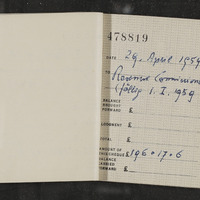 478819
DATE 29. April 1959
TO Revenue Commissioners
(fällig 1. I. 1959
BALANCE
BROUGHT
FORWARD £
LODGMENT £
TOTAL £
AMOUNT OF
THIS CHEQUE £ 196.17.6
BALANCE
CARRIED
FORWARD £